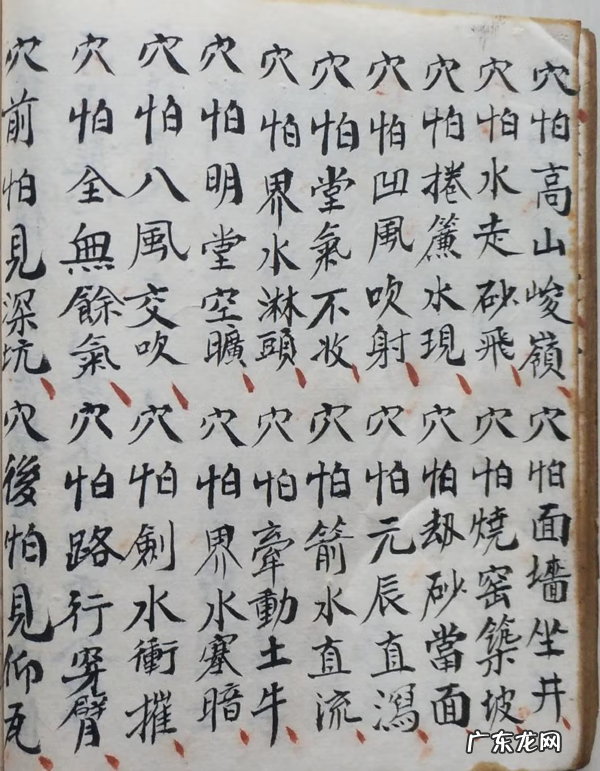 穴怕高山峻嶺 穴怕面墻坐井
穴怕水走砂飛 穴怕燒窑築坡
穴怕捲簾水現 穴怕劫砂當面
穴怕凹風吹射 穴怕元辰直瀉
穴怕堂氣不收 穴怕箭水直流
穴怕界水淋頭 穴怕牽動土牛
穴怕明堂空曠 穴怕界水塞暗
穴怕八風交吹 穴怕劍水衝摧
穴怕全無餘氣 穴怕路行穿臂
穴前怕見深坑 穴後怕見仰瓦
广东龙网